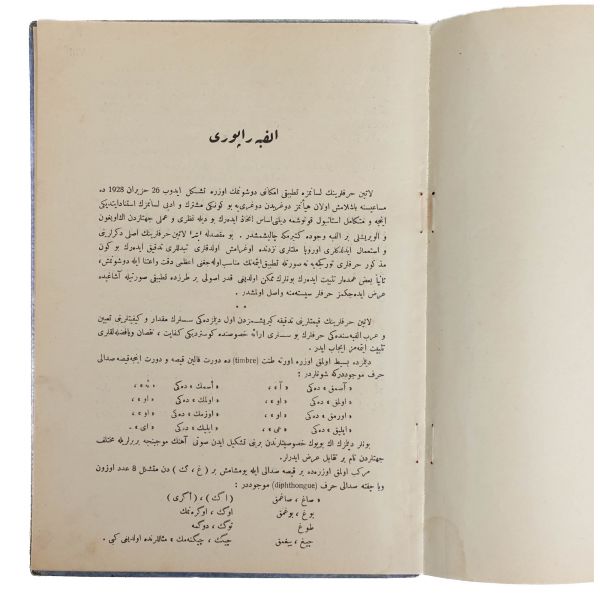 الفبه راپوری
لاتین حرفلرینك لسانمزه تطبیقی امكانی دوشونمك اوزره تشكل ایدوب 26 حزیران 1928 ده
مساعیسنه باشلامش اولان هیأتمز دوغریدن دوغری‌یه بو كونكی مشترك و ادبی لسانمزك استنادایتدیكی
اینجه و متكامل استانبول قونوشمه دیلنی اساس اتخاذ ایده‌رك بو دیله نظری و عملی جهتلردن اك‌اویغون
و الویریشلی بر الفبه وجوده كتیرمكه چالیشمشدر . بو مقصدله ابتدا لاتین حرفلرینك اصل دكرلرینی
و استعمال ایدلدكلری اوروپا ملتلری نزدنده اوغرامش اولدقلری تبدللری تدقیق ایده‌رك بو كون
مذكور حرفلری توركجه‌یه نه صورتله تطبیق ایتمه‌نك مناسب اوله‌جغنی اعظمی دقت واعتنا ایله دوشونمش،
ثانیاً بعض عمده‌لر تثبیت ایده‌رك بونلرك ممكن اولدیغی قدر اصولی بر طرزده تطبیق صورتیله آشاغیده
عرض ایده‌جكمز حرفلر سیسته‌منه واصل اولمشدر .
* *
لاتین حرفلرینك قیمتلرینی تدقیقه كیریشمزدن اول دیلمزده‌كی سسلرك مقدار و كیفیتلرینی تعیین
و عرب الفبه‌سنده‌كی حرفلرك بو سسلری ارائه خصوصنده كوستردیكی كفایت ، نقصان ویافضله‌لقلری
تثبیت ایتمه‌مز ایجاب ایدر .
دیلمزده بسیط اولمق اوزره اورته طنت (timbre) ده دورت قالین قیصه و دورت اینجه‌قیصه صدالی
حرف موجوددركه شونلردر :
« آسمق » ده‌كی « آ » ، « أسمك » ده‌كی « أ » ،
« اولمق » ده‌كی « او » ، « اولمك » ده‌كی « او » ،
« اورمق » ده‌كی « او » ، « اوزمك » ده‌كی « او » ،
« ایلیق » ده‌كی « ی » ، « ایلیك » ده‌كی « ای » .
بونلر دیلمزك اك بویوك خصوصیتلرندن برینی تشكیل ایدن صوتی آهنك موجبنجه بربرلریله مختلف
جهتلردن تام بر تقابل عرض ایدرلر.
مركب اولمق اوزره‌ده بر قیصه صدالی ایله یومشامش بر ( غ ، گ ) دن متشكل 8 عدد اوزون
ویا چفته صدالی حرف (diphthongue) موجوددر :
« صاغ ، صاغمق ( اگ ) ، ( أگری )
بوغ ، بوغمق اوگ ، اوگرنمك
طوغ توگ ، دوگمه
جیغ ، ییغمق چیگ ، چیگنه‌مك » مثاللرنده اولدیغی كبی .